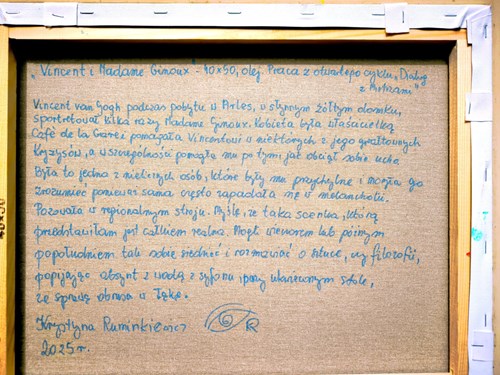 „Vincent i Madame Ginoux" - 40x50, olej. Praca z otwartego cyklu „Dialog
z Mistrzami"
Vincent van Gogh podczas pobytu w Arles, w słynnym żółtym domku,
sportretował kilka razy Madame Ginoux. Kobieta była właścicielką
Café de la Gare i pomagała Vincentowi w niektórych z jego gwałtownych
kryzysów, a w szczególności pomogła mu po tym, jak obciął sobie ucho
Była to jedna z nielicznych osób, które były mu przychylne i mogła go
zrozumieć ponieważ sama często zapadała się w melancholii.
Pozowała w regionalnym stroju. Myślę, że taka scenka, którą
przedstawiłam jest całkiem realna. Mogli wieczorem lub późnym
popołudniem tak sobie siedzieć i rozmawiać o sztuce, czy filozofii,
popijając absynt z wodą z syfonu, przy ukwieconym stole,
ze sprawą obrusa w
Krystyna Ruminkiewicz
2025 r.
40x50